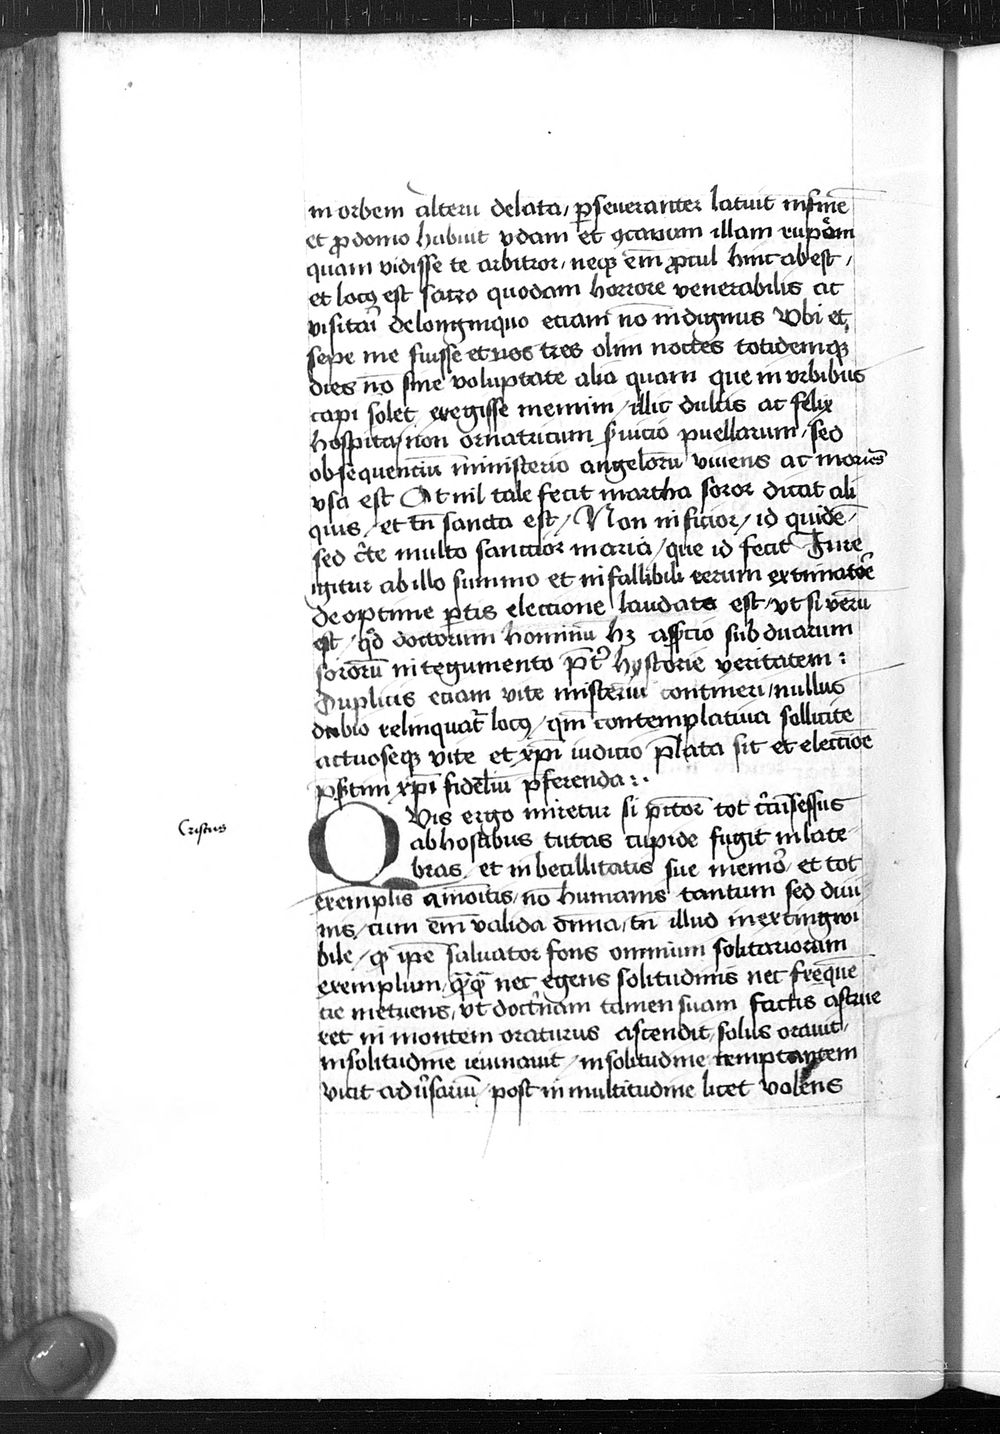 in orbem alteru delata / p̱seueranter latuit infine̅
et ꝓ domo habuit vdam et ꝯcauam illam rupem
quam vidisse te arbitror / neqꝫ em̅ ꝓcul hinc abest /
et locꝰ est sacro quodam horrore venerabilis ac
visitari de longinquo eciam no̅ indignus Vbi et
sepe me fuisse et nos tres olim noctes totidemqꝫ
dies no̅ sine voluptate alia quam que in vrbibus
capi solet exegisse memini / illic dulcis ac felix
hospita / non ornatricum ẜuicio puellarum / sed
obsequentiu̅ ministerio angeloru̅ viuens ac morie̅s
vsa est At nil tale fecit martha soror dicat ali
quis / et tn̅ sancta est / Non inficior / id quide̅
sed c̅te multo sanctior maria / que id fecit Iure
igitur ab illo summo et infallibili rerum extimator̅e
de optime p̱tis electione laudata est / vt si veru̅
est / qd̅ doctorum hominu̅ hꝫ asserc̅io sub duarum
sororu̅ integumento p̅t̓ hystorie veritatem :
Duplicis eciam vite misteriu̅ contineri / nullus
dubio relinquat᷑ locꝰ / qm̅ contemplatiua sollicite
actuoseqꝫ vite et xp̅i iudicio p̅lata sit et elect̅ioe
p̱s̅tim xp̅i fideliu̅ p̅ferenda : .
QVis ergo miretur si p̅itor̅ tot c̅cu̅sessus
ab hostibus tutas cupide fugit in late
bras / et inbecillitatis sue memor̓ / et tot
exemplis amo̅itis / no̅ humanis tantum sed diui
nis / cum em̅ valida om̅ia / tn̅ illud inextingwi
bile / ꝙ ip̅e saluator fons omnium solitariorum
exemplum / q̅ꝙ̅ nec egens solitudinis nec freque̅
cie metuens / vt doct̓inam tamen suam factis astrue
ret in montem oraturus ascendit / solus orauit /
in solitudine ieiunauit / in solitudine temptantem
vicit adu̓sariu̅ / post in multitudine licet volens
Cristus